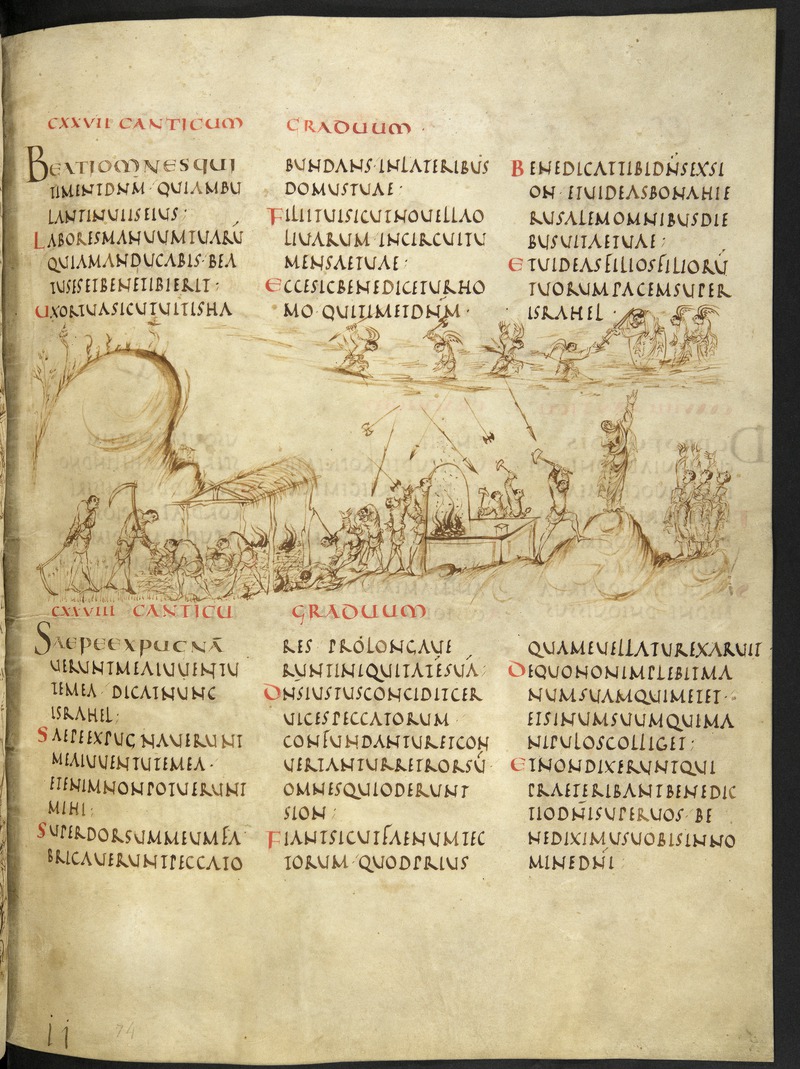 CXXVII CANTICUM GRADUUM
BEATIOMNESQUI
TIMENTDNM QUIAMBU
LANTINUIISEIUS
LABORESMANUUMTUARŪ
QUIAMANDUCABIS BEA
TUSESETBENETIBIERIT
UXORTUASICUTUITISHA
BUNDANS INLATERIBUS
DOMUSTUAE
FILIITUISICUTNOUELLAO
LIUARUM INCIRCUITU
MENSAETUAE
ECCESICBENEDICETURHO
MO QUITIMETDNM
BENEDICATTIBIDNSEXSI
ON ETUIDEASBONAHIE
RUSALEMOMNIBUSDIE
BUSUITAETUAE
ETUIDEASFILIOSFILIORŪ
TUORUMPACEMSUPER
ISRAHEL
CXXVIII CANTICU GRADUUM
SAEPEEXPUGNĀ
UERUNTMEAIUUENTU
TEMEA DICATNUNC
ISRAHEL
SAEPEEXPUGNAUERUNT
MEAIUUENTUTEMEA
ETENIMNONPOTUERUNT
MIHI
SUPERDORSUMMEUMFA
BRICAUERUNTPECCATO
RES PROLONGAUE
RUNTINIQUITATĒSUA
DNSIUSTUSCONCIDITCER
UICESPECCATORUM
CONFUNDANTURETCON
UERTANTURRETRORSŪ
OMNESQUIODERUNT
SION
FIANTSICUTFAENUMTEC
TORUM QUODPRIUS
QUAMEUELLATUREXARUIT
DEQUONONIMPLEBITMA
NUMSUAMQUIMETET
ETSINUMSUUMQUIMA
NIPULOSCOLLIGET
ETNONDIXERUNTQUI
PRAETERIBANTBENEDIC
TIODNISUPERUOS BE
NEDIXIMUSUOBISINNO
MINEDNI
ii
74